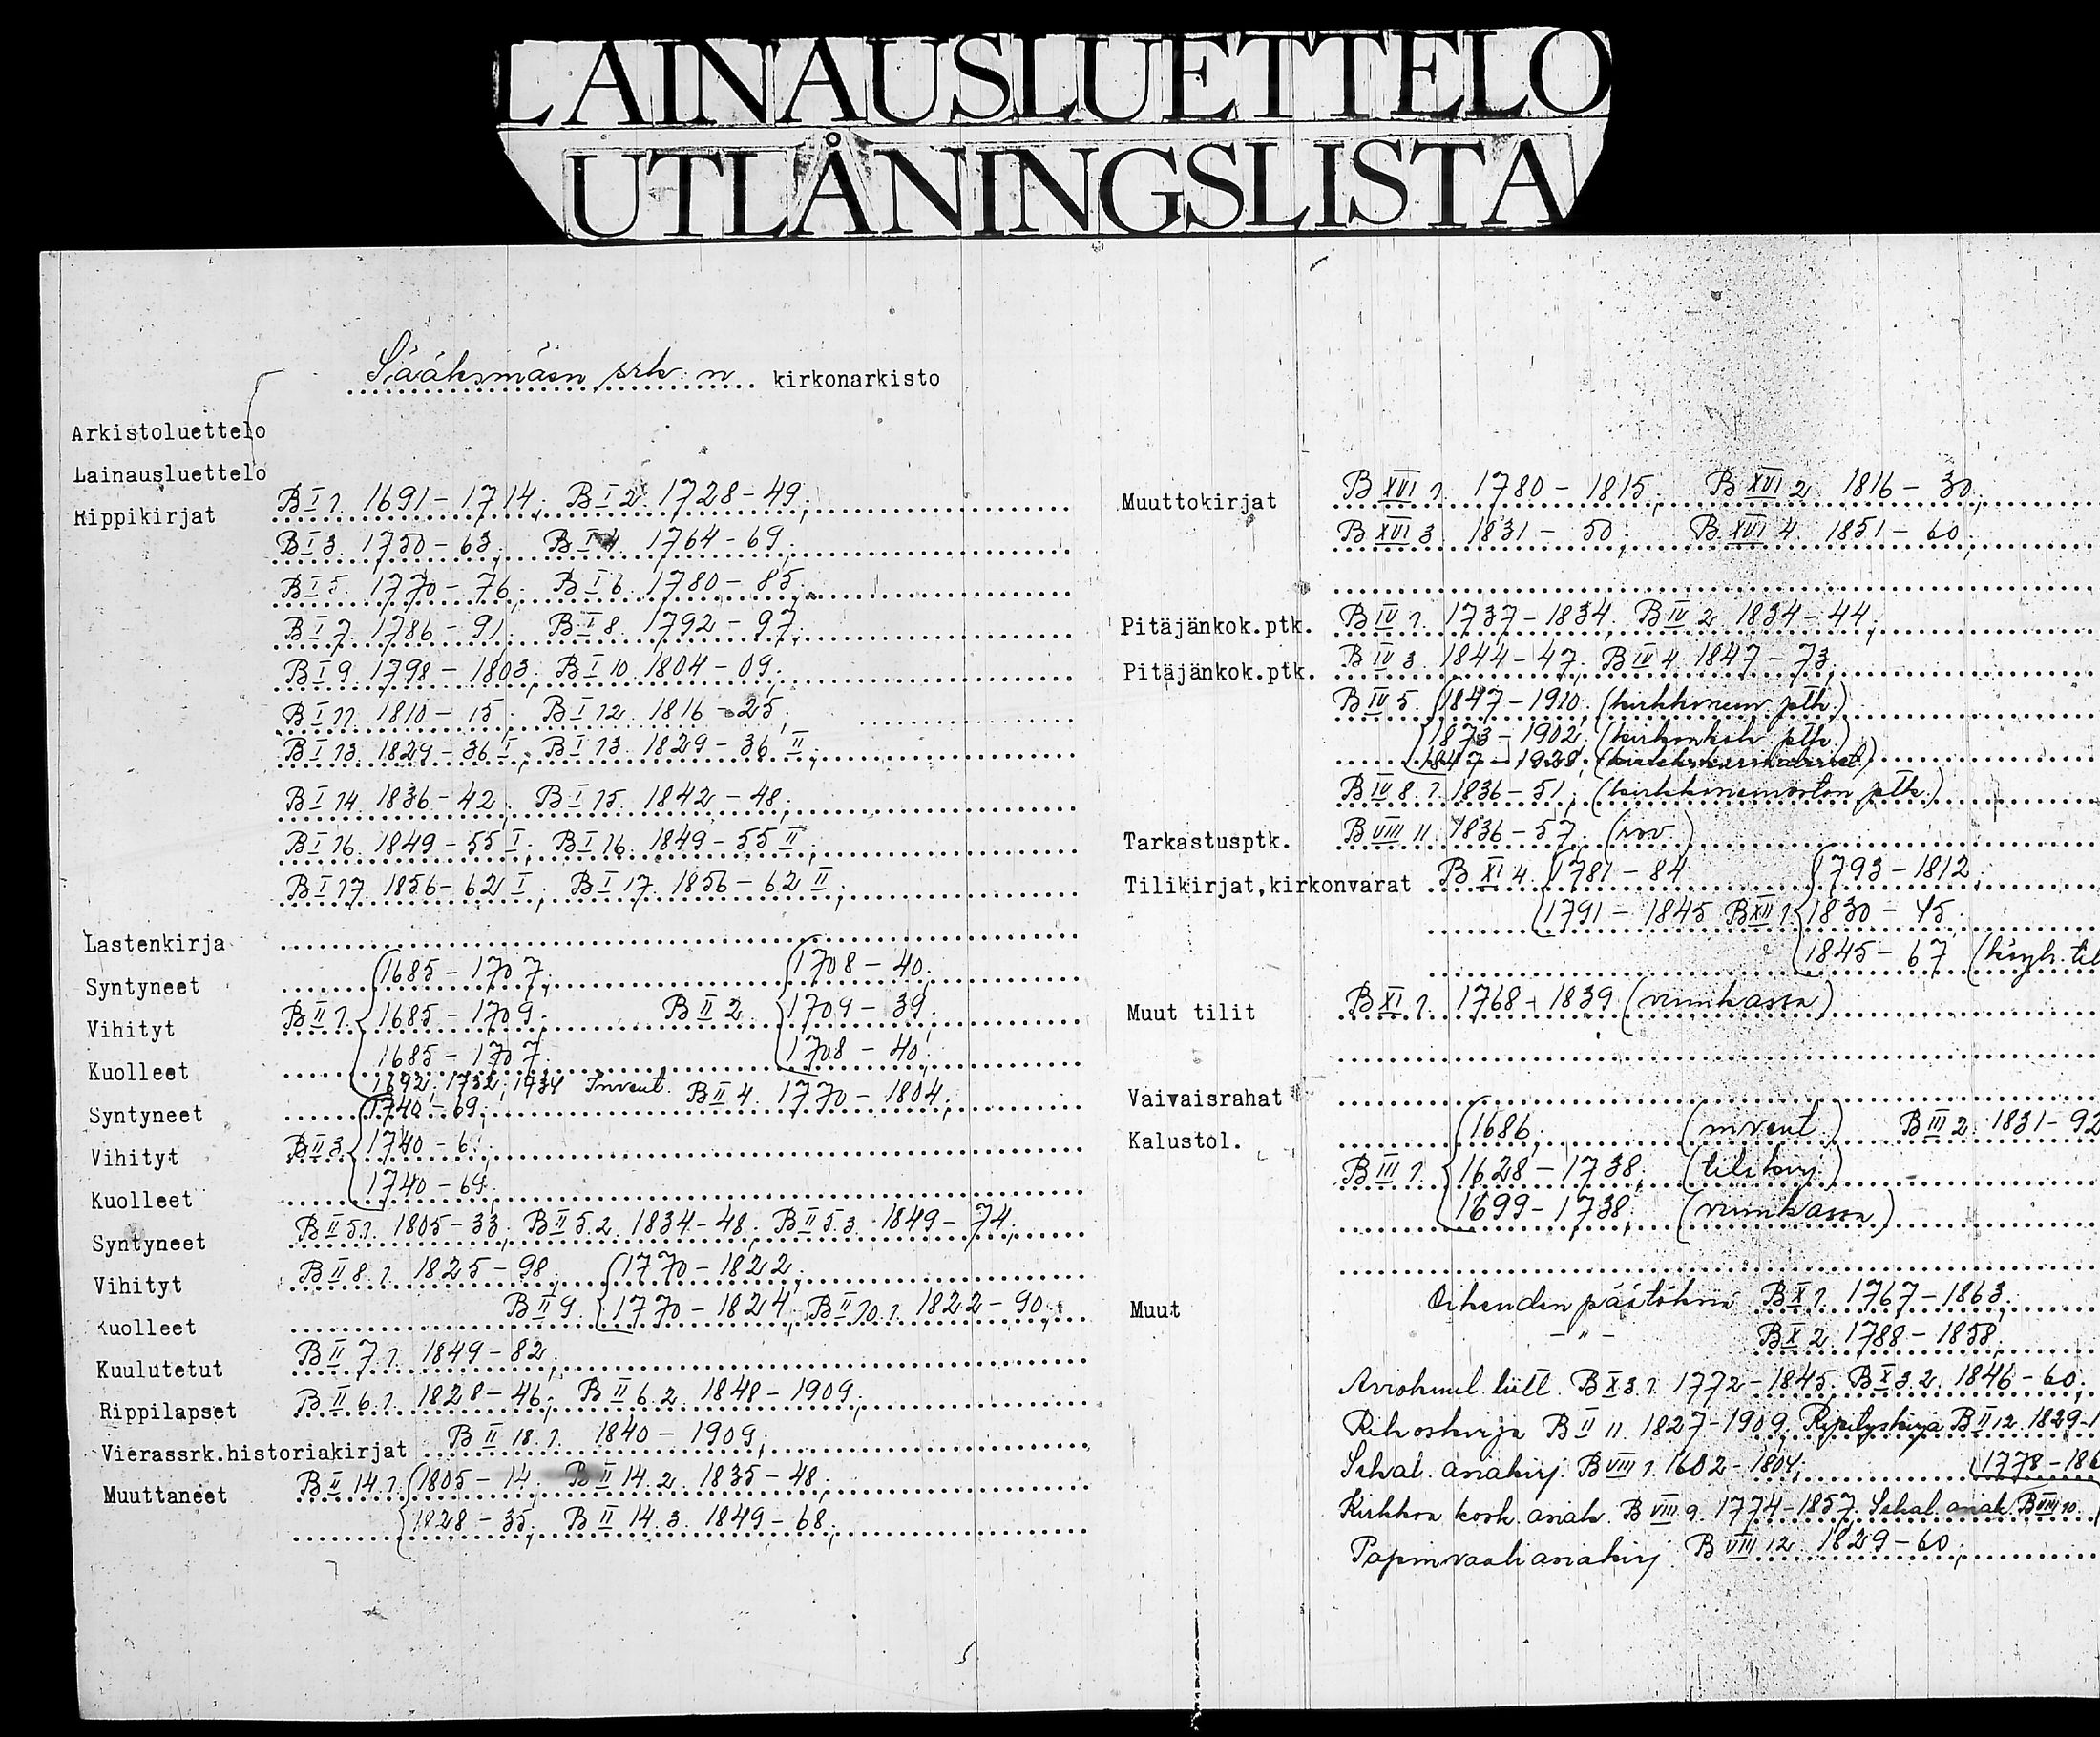 LAINAUSLUETTELO
UTLÅNINGSLISTA
Sääksmäen srk:n kirkonarkisto
Arkistoluettelo
Lainausluettelo
Rippikirjat B I 1. 1691-1714; B I 2. 1728-49;
B I 3. 1750-63; B I 4. 1764-69;
B I 5. 1770-76; B I 6. 1780-85;
B I 7. 1786-91; B I 8. 1792-97;
B I 9. 1798-1803; B I 10. 1804-09;
B I 11. 1810-15; B I 12. 1816-25;
B I 13. 1829-36 I; B I 13. 1829-36 II;
B I 14. 1836-42; B I 15. 1842-48;
B I 16. 1849-55 I; B I 16. 1849-55 II;
B I 17. 1856-62 I; B I 17. 1856-62 II;
Lastenkirja
Syntyneet 1685-1707; 1708-40;
Vihityt B II 1. 1685-1709; B II 2. 1709-39;
Kuolleet 1685-1707; 1708-40;
1692; 1732; 1734 Invent. B II 4. 1770-1804;
Syntyneet 1740-69;
Vihityt B II 3. 1740-6
Kuolleet 1740-69;
Syntyneet B II 5.1. 1805-33; B II 5.2. 1834-48; B II 5.3. 1849-74;
Vihityt B II 8.1. 1825-98; 1770-1822;
Kuolleet B II 9. 1770-1824; B II 10.1. 1822-90;
Kuulutetut B II 7.1. 1849-82;
Rippilapset B II 6.1. 1828-46; B II 6.2. 1848-1909;
Vierassrk.historiakirjat B II 18.1. 1840-1909;
Muuttaneet B II 14.1. 1805-14; B II 14.2. 1835-48;
1828-35; B II 14.3. 1849-68;
Muuttokirjat B XVI 1. 1780-1815; B XVI 2. 1816-30;
B XVI 3. 1831-50; B XVI 4. 1851-60;
Pitäjänkok.ptk. B IV 1. 1737-1834; B IV 2. 1834-44;
Pitäjänkok.ptk. B IV 3. 1844-47; B IV 4. 1847-73;
B IV 5. 1847-1910; (kirkkoneuv ptk.)
1873-1902; (kirkonkok ptk.)
1847-1928;
B IV 8.1. 1836-51; (kirkkoneuvoston ptk.)
Tarkastusptk. B VIII 11. 1836-57; (rov.)
Tilikirjat,kirkonvarat B XI 4. 1781-84 1793-1812;
1791-1845 B XII 1. 1830-45;
1845-67 (köyh. til
Muut tilit B XI 1. 1768-1839 (viinikassa)
Vaivaisrahat
Kalustol. 1686; (invent.) B III 2. 1831-92
B III 1. 1628-1738; (tilikirj.)
1699-1738; (viinikassa)
Muut Oikeuden päätöksiä B X 1. 1767-1863;
- " - B X 2. 1788-1858;
Aviokuul. luett. B X 3.1. 1772-1845; B X 3.2. 1846-60;
Rikoskirja B II 11. 1827-1909; Ripityskirja B II 12. 1829-1
Sekal. asiakirj. B VIII 1. 1602-1804; 1778-186
Kirkkoa kosk. asiak. B VIII 9. 1774-1857; Sekal. asiak. B VIII 10.
Papinvaaliasiakirj B VIII 12. 1829-60;